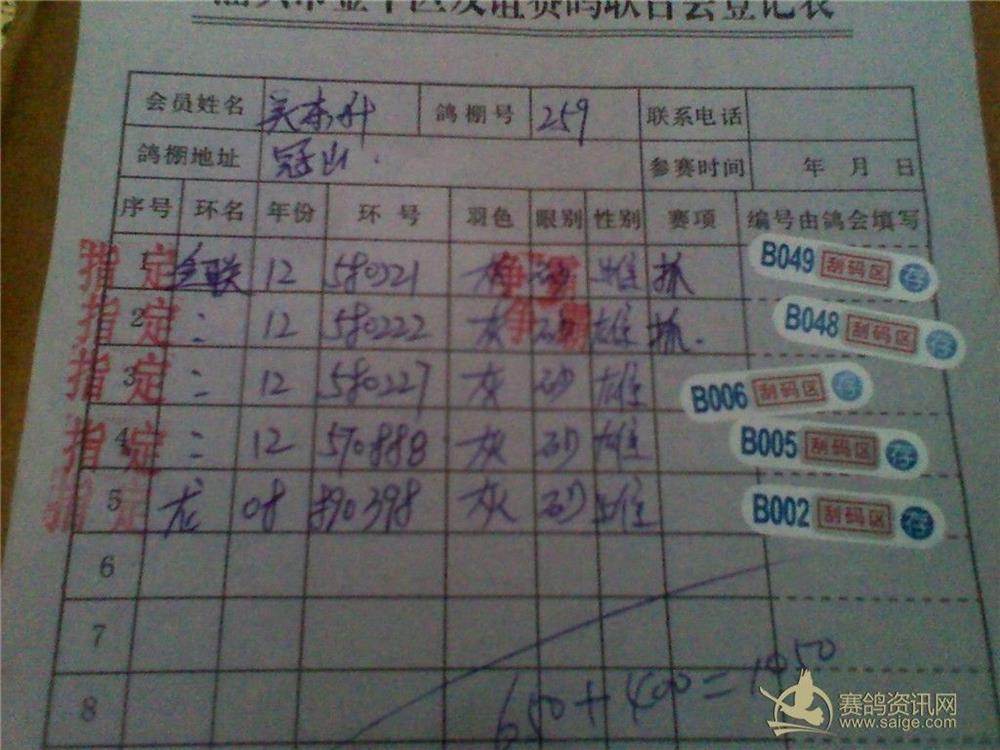 汕头市金平区友谊赛鸽联合会登记表
会员姓名 吴东升 鸽棚号 259 联系电话
鸽棚地址 冠山. 参赛时间 年 月 日
序号 环名 年份 环号 羽色 眼别 性别 赛项 编号由鸽会填写
指定 1 全联 12 580321 灰 砂 雄 抓 争霸 B049 刮码区 存
指定 2 〃 12 580222 灰 砂 雄 抓. 争霸 B048 刮码区 存
指定 3 〃 12 580227 灰 砂 雄 B006 刮码区 存
指定 4 〃 12 570888 灰 砂 雄 B005 刮码区 存
指定 5 龙 08 890398 灰 砂 雄 B002 刮码区 存
6
7
8
650+400=1050
赛鸽资讯网
www.saige.com